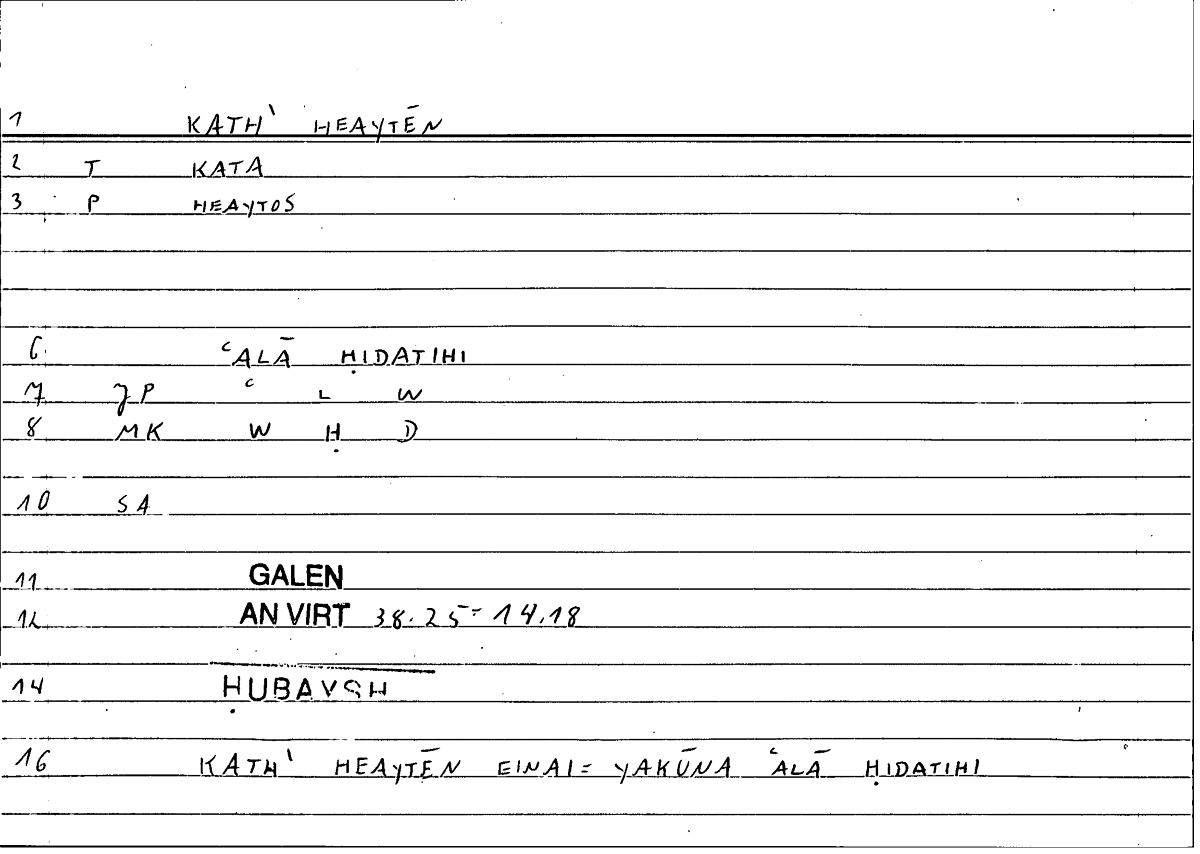 1 KATH' HEAYTĒN
2 T KATA
3 P HEAYTOS
6 ʿALĀ ḤIDATIHI
7 JP ʿ L W
8 MK W Ḥ D
10 SA
11 GALEN
12 AN VIRT 38.25=14.18
14 ḤUBAYSH
16 KATH' HEAYTĒN EINAI= YAKŪNA ʿALĀ ḤIDATIHI